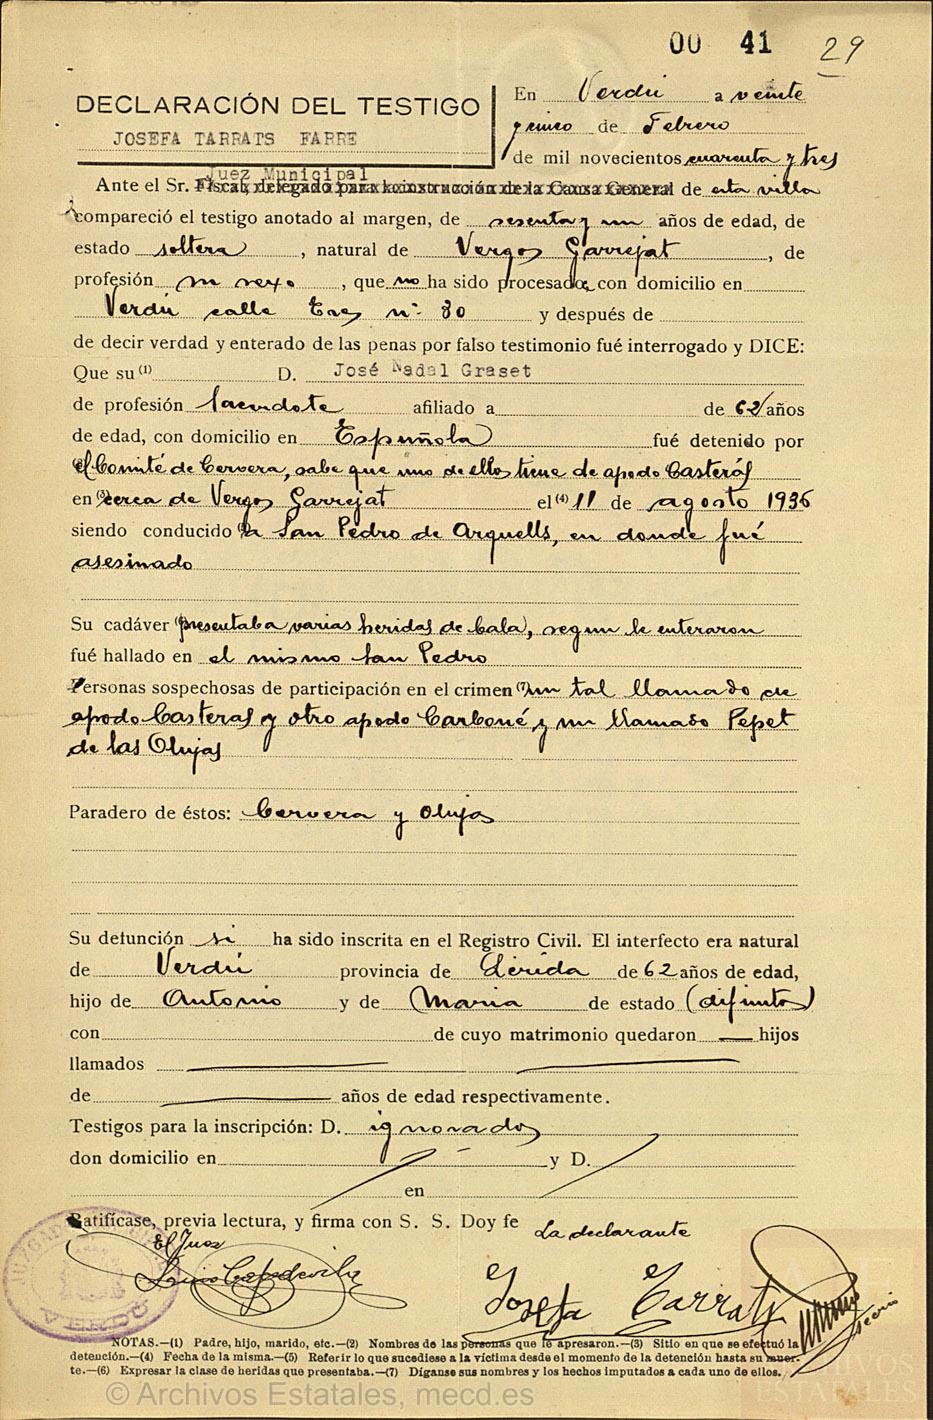 00 41 29
DECLARACIÓN DEL TESTIGO
JOSEFA TARRATS FARRE
En Verdú a veinte
y cinco de Febrero
de mil novecientos cuarenta y tres
Juez Municipal
Ante el Sr. Fiscal, delegado para la instrucción de la Causa General de esta villa
compareció el testigo anotado al margen, de sesenta y un años de edad, de
estado soltera, natural de Vergos Garrejat, de
profesión su sexo, que no ha sido procesado, con domicilio en
Verdú calle Eras nº 30 y después de
de decir verdad y enterado de las penas por falso testimonio fué interrogado y DICE:
Que su (1) D. José Nadal Graset
de profesión Sacerdote afiliado a de 62 años
de edad, con domicilio en Española fué detenido por
el Comité de Cervera, sabe que uno de ellos tiene de apodo Casterás
en (3) cerca de Vergos Garrejat el (4) 11 de agosto 1936
siendo conducido a San Pedro de Arquells, en donde fué
asesinado
Su cadáver presentaba varias heridas de bala, segun le enteraron
fué hallado en el mismo San Pedro
Personas sospechosas de participación en el crimen (7) un tal llamado de
apodo Casteras y otro apodo Carboné y un llamado Pepet
de las Olujas
Paradero de éstos: Cervera y Olujas
Su defunción si ha sido inscrita en el Registro Civil. El interfecto era natural
de Verdú provincia de Lérida de 62 años de edad,
hijo de Antonio y de Maria de estado (difuntos)
con de cuyo matrimonio quedaron — hijos
llamados
de años de edad respectivamente.
Testigos para la inscripción: D. ignorados
don domicilio en y D.
en
Ratifícase, previa lectura, y firma con S. S. Doy fe
La declarante
El Juez
Josefa Tarrats
NOTAS.—(1) Padre, hijo, marido, etc.—(2) Nombres de las personas que le apresaron.—(3) Sitio en que se efectuó la
detención.—(4) Fecha de la misma.—(5) Referir lo que sucediese a la víctima desde el momento de la detención hasta su muer-
te.—(6) Expresar la clase de heridas que presentaba.—(7) Díganse sus nombres y los hechos imputados a cada uno de ellos.
© Archivos Estatales, mecd.es